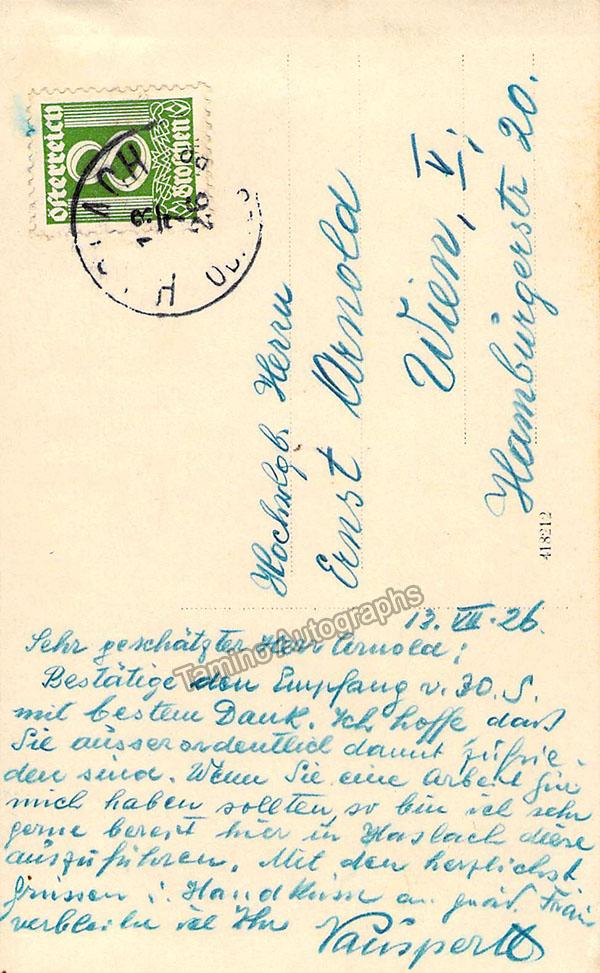 Österreich
8
Groschen
Hochwlgb. Herrn
Ernst Arnold
Wien, V;
Hamburgerstr 20.
418212
13. VII. 26.
Sehr geschätzter Herr Arnold;
Bestätige den Empfang v. 30. S.
mit bestem Dank. Ich hoffe, dass
Sie ausserordentlich damit zufrie-
den sind. Wenn Sie eine Arbeit für
mich haben sollten, so bin ich sehr
gerne bereit hier in Haslach diese
auszuführen. Mit den herzlichst
Grüssen u. Handküsse an gnäd. Frau
verbleibe ich Ihr
Tamino Autographs